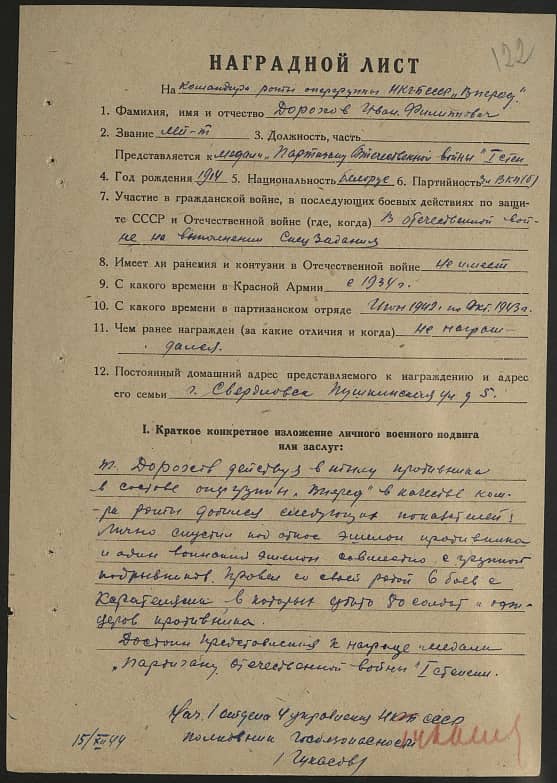 122
НАГРАДНОЙ ЛИСТ
На Командира роты опергруппы НКГБ БССР „Вперед."
1. Фамилия, имя и отчество Дорохов Иван Филиппович
2. Звание мл-т 3. Должность, часть
Представляется к медали „Партизану Отечественной войны" I степ
4. Год рождения 1914 5. Национальность белорус 6. Партийность ВКП(б)
7. Участие в гражданской войне, в последующих боевых действиях по защи-
те СССР и Отечественной войне (где, когда) В отечественной вой-
не на выполнении Спец задания
8. Имеет ли ранения и контузии в Отечественной войне не имеет
9. С какого времени в Красной Армии с 1934 г.
10. С какого времени в партизанском отряде Июн 1942 г. по Окт. 1943 г.
11. Чем ранее награжден (за какие отличия и когда) не награж-
дался.
12. Постоянный домашний адрес представляемого к награждению и адрес
его семьи г. Свердловск Пушкинская ул д 5.
I. Краткое конкретное изложение личного военного подвига
или заслуг:
т. Дорохов действуя в тылу противника
в составе опергруппы „Вперед" в качестве ком-
ра роты добился следующих показателей:
Лично спустил под откос эшелон противника
и один воинский эшелон совместно с группой
подрывников. Провел со своей ротой 6 боев с
Карателями в которых убито 80 солдат и офи-
церов противника.
Достоин представления к награде медали
„Партизану Отечественной войны" I степени.
Нач. 1 отдела 4 управления НКГБ СССР
полковник Госбезопасности
15/XII 44
/Гукасов/